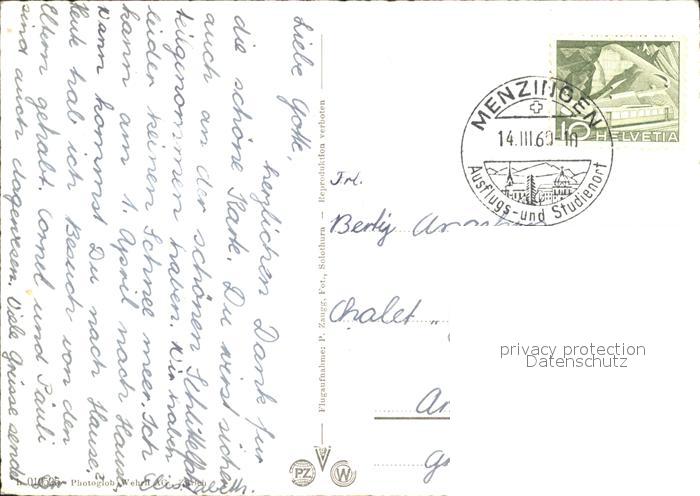 Liebe Gotte,
herzlichen Dank für
die schöne Karte. Du wirst sicher
auch an der schönen Schlittelfahrt
teilgenommen haben. Wir haben
leider keinen Schnee meer. Ich
kann am 1. April nach Hause.
Wann kommst Du nach Hause?
Heute hab ich Besuch von den
Eltern gehabt. Cornel und Pauli
sind auch dagewesen. Viele Grüsse sendet
Dir Elisabeth.
Flugaufnahme: P. Zaugg, Fot., Solothurn — Reproduktion verboten
Photoglob-Wehrli AG., Zürich
PZ W
MENZINGEN
14.III.60-10
Ausflugs- und Studienort
10 HELVETIA
Frl.
Berty
Chalet „
privacy protection
Datenschutz